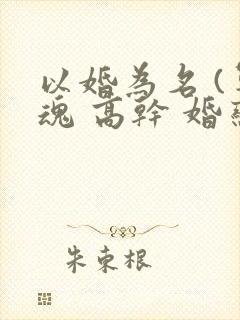 以婚為名 (
魂 高幹 婚
朱東根